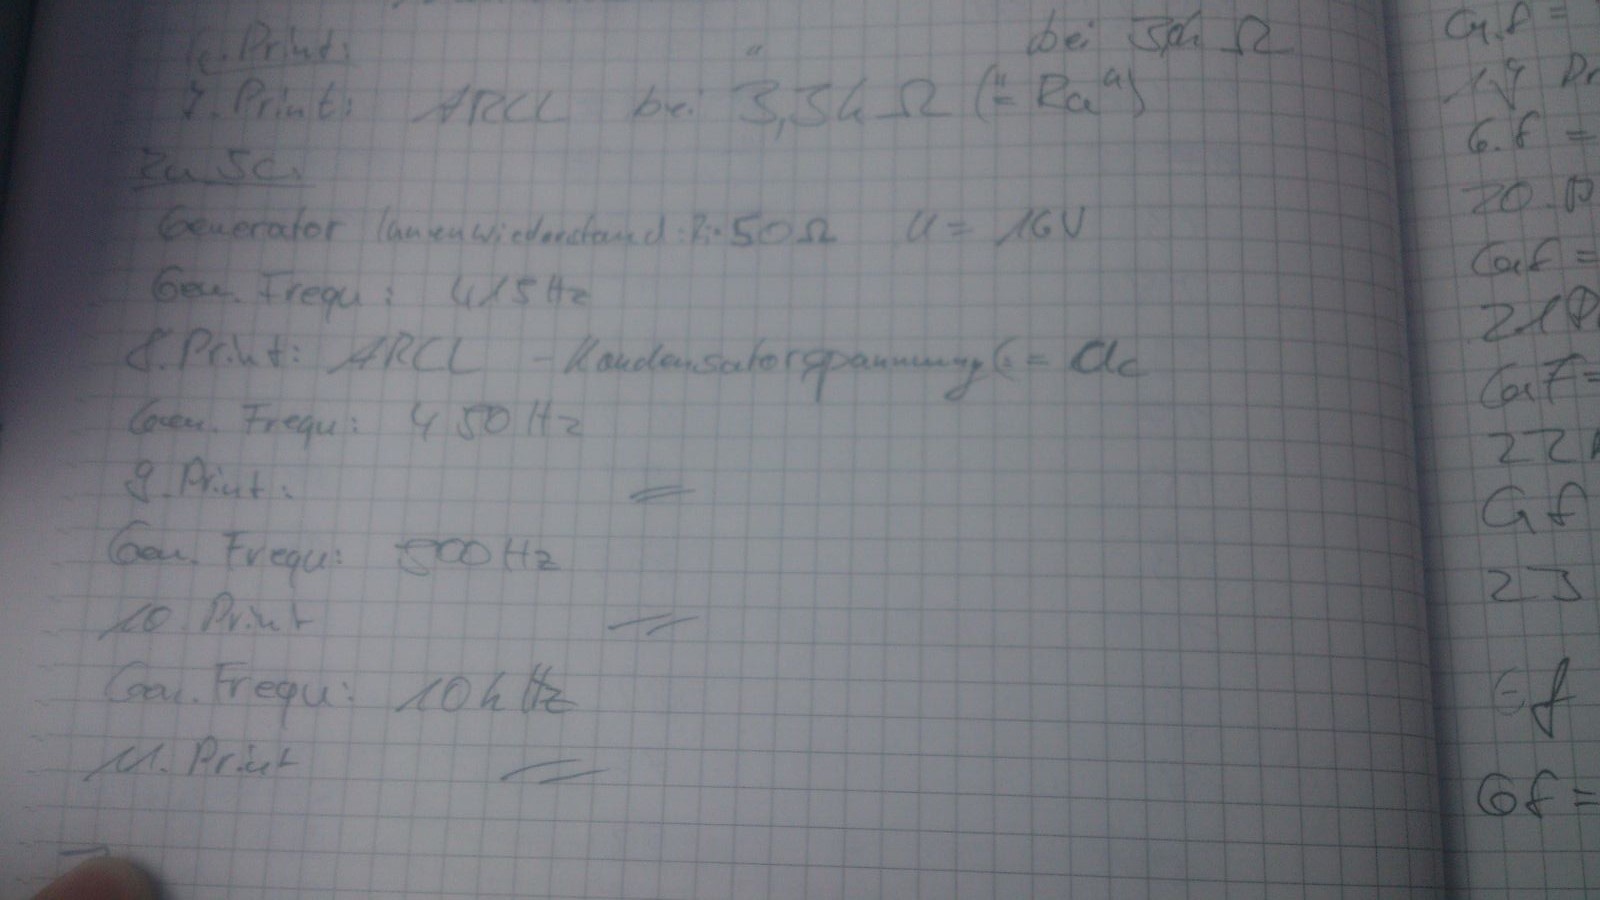 6. Print: " bei Ω
7. Print: ARCL bei 3,3k Ω (= Ra")
Zu 5c.
Generator Innenwiederstand: Ri=50Ω U = 16V
Gen. Frequ: 415Hz
8. Print: ARCL - Kondensatorspannung (= Uc
Gen. Frequ: 450Hz
9. Print:
Gen. Frequ: 500Hz
10. Print
Gen. Frequ: 10kHz
11. Print
G.f =
6.f =
20.
G.f =
22
Gf
23
Gf
Gf =